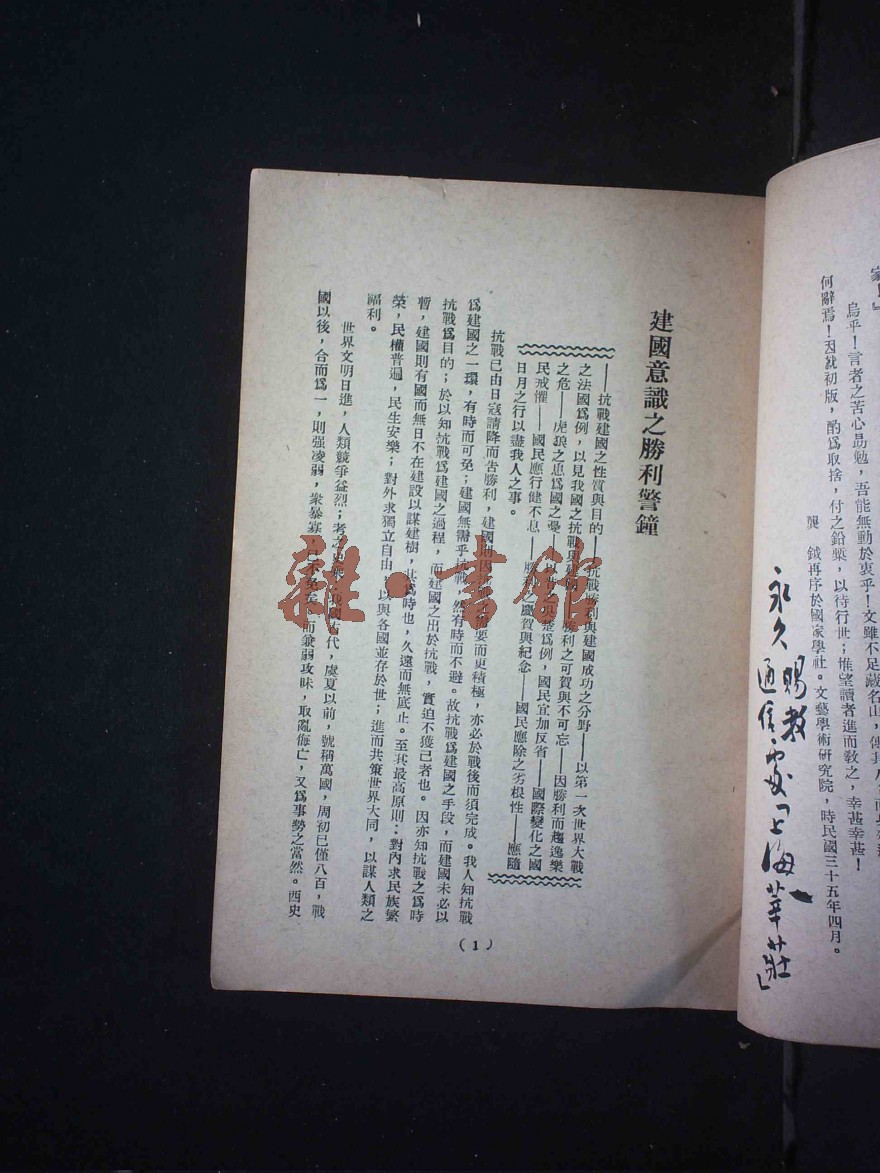 家！』
嗚乎！言者之苦心勗勉，吾能無動於衷乎！文雖不足藏名山，傳其
何辭焉！因就初版，酌爲取捨，付之鉛槧，以待行世；惟望讀者進而敎之，幸甚幸甚！
龔　鉞再序於國家學社。文藝學術研究院，時民國三十五年四月。
賜教
永久通信處「上海華莊」
建國意識之勝利警鐘
——抗戰建國之性質與目的——抗戰勝利與建國成功之分野——以第一次世界大戰
之法國爲例，以見我國之抗戰與建國——勝利之可賀與不可忘——因勝利而趨逸樂
之危——虎狼之患爲國之憂——爲例，國民宜加反省——國際變化之國
民戒懼——國民應行健不息——勝利之慶賀與紀念——國民應除之劣根性——應隨
日月之行以盡我人之事。
抗戰已由日寇請降而告勝利，建國則因要而更積極，亦必於戰後而須完成。我人知抗戰
爲建國之一環，有時而可免；建國無需乎抗戰，然有時而不避。故抗戰爲建國之手段，而建國未必以
抗戰爲目的；於以知抗戰爲建國之過程，而建國之出於抗戰，實迫不獲已者也。因亦知抗戰之爲時
暫，建國則有國而無日不在建設以謀建樹，其爲時也，久遠而無底止。至其最高原則：對內求民族繁
榮，民權普遍，民生安樂；對外求獨立自由，以與各國並存於世；進而共策世界大同，以謀人類之
福利。
世界文明日進，人類競爭益烈；考之史乘，我國古代，虞夏以前，號稱萬國，周初已僅八百，戰
國以後，合而爲一，則强凌弱，衆暴寡，已不免矣。而兼弱攻昧，取亂侮亡，又爲事勢之當然。西史
（1）
雜·書館